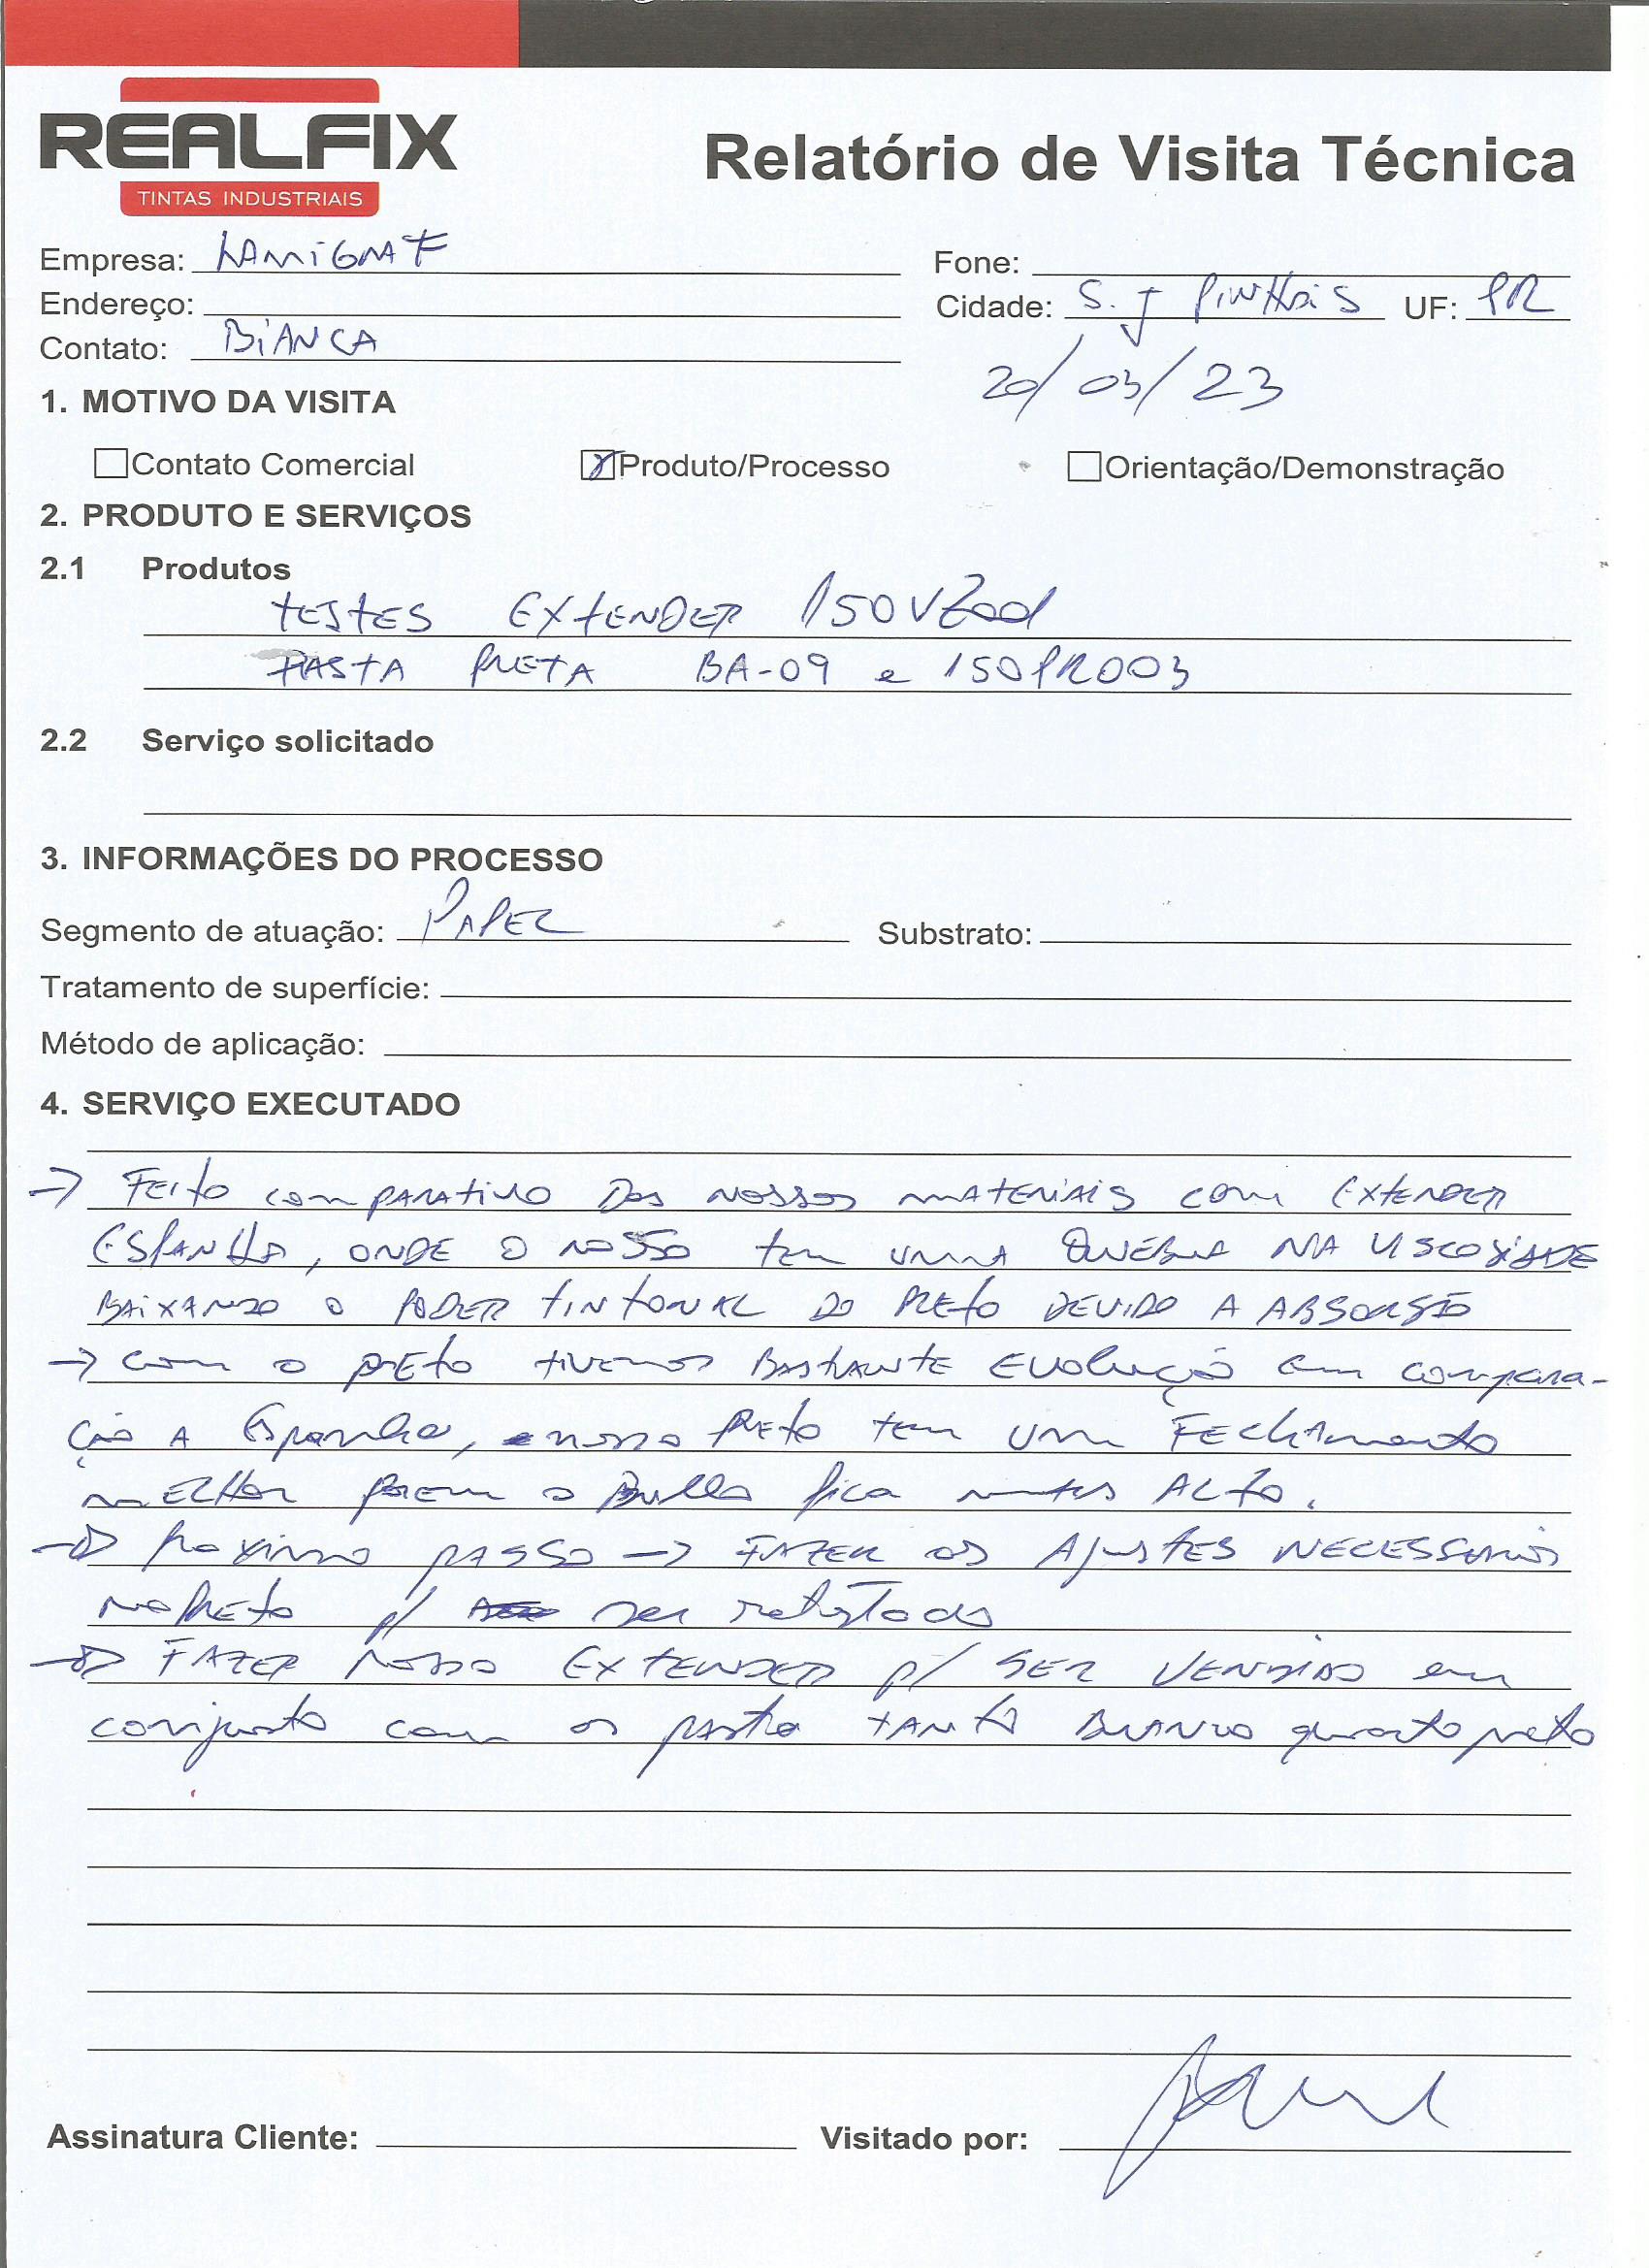 REALFIX
TINTAS INDUSTRIAIS
Relatório de Visita Técnica
Empresa: LAMIGRAF Fone:
Endereço: Cidade: S. J PINHAIS UF: PR
Contato: BIANCA
20/03/23
1. MOTIVO DA VISITA
Contato Comercial Produto/Processo Orientação/Demonstração
2. PRODUTO E SERVIÇOS
2.1 Produtos
TESTES EXTENDER
PASTA PRETA BA-09 e 150PR003
2.2 Serviço solicitado
3. INFORMAÇÕES DO PROCESSO
Segmento de atuação: PAPEL Substrato:
Tratamento de superfície:
Método de aplicação:
4. SERVIÇO EXECUTADO
→ FEITO comPARATIVO DOS NOSSOS MATERIAIS COM EXTENDER
ESPANHA, ONDE O NOSSO tem UMA QUEBRA NA VISCOSIDADE
BAIXANDO O PODER TINTORIAL DO PRETO DEVIDO A ABSORSÃO
→ Com o PRETO tivemos BASTANTE EVOLUÇÃO em compara-
ção A Espanha, nosso PRETO tem um FECHAmento
mELHOR porem o Brilho fica ALTO.
→ Proximo PASSO → FAZER OS AJUSTES NECESSARIOS
no PRETO p/ ser retestado
→ FAZER Nosso EXTENDER p/ SER VENDIDO em
conjunto com as pasta TANTO BRANCO quanto preto
Assinatura Cliente: Visitado por: